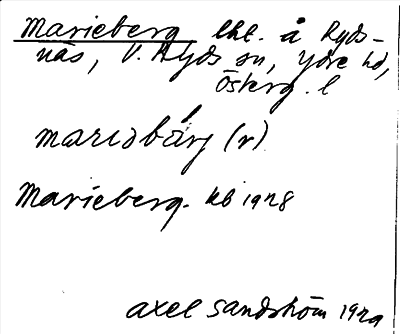 Marieberg lht. å Ryds-
näs, V. Ryds sn, Ydre hd,
Österg. l
mariabärj (r)
Marieberg. kb 1928
Axel Sandström 1929